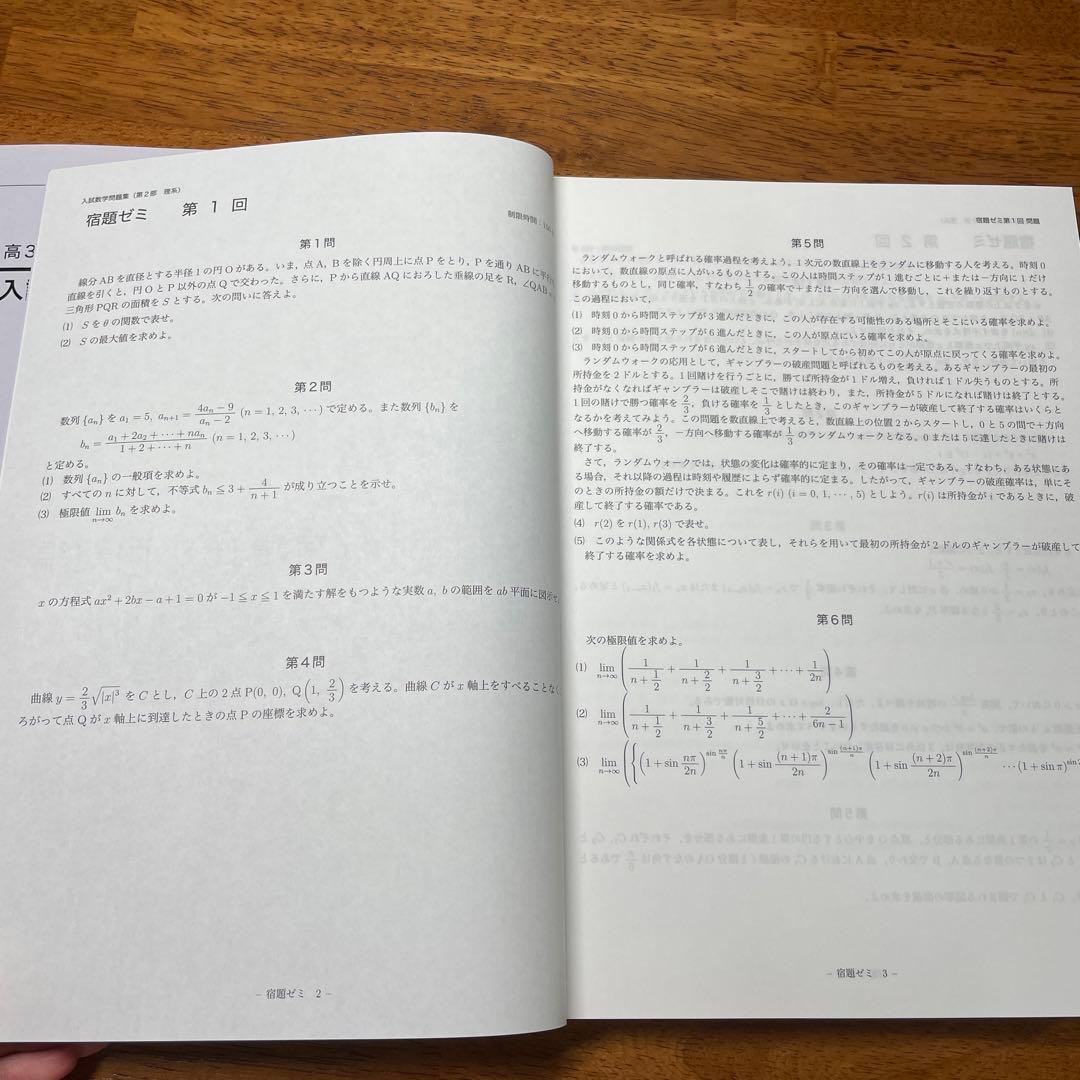 高3
入
入試数学問題集（第2部 理系）
宿題ゼミ 第 1 回
制限時間：150
第1問
線分ABを直径とする半径1の円Oがある。いま，点A，Bを除く円周上に点Pをとり，Pを通りABに平行
直線を引くと，円OとP以外の点Qで交わった。さらに，Pから直線AQにおろした垂線の足をR，∠QAB
三角形PQRの面積をSとする。次の問いに答えよ。
(1) Sをθの関数で表せ。
(2) Sの最大値を求めよ。
第2問
数列{aₙ}を a₁ = 5, aₙ₊₁ = (4aₙ − 9)/(aₙ − 2) (n = 1, 2, 3, ⋯) で定める。また数列{bₙ}を
bₙ = (a₁ + 2a₂ + ⋯ + naₙ)/(1 + 2 + ⋯ + n) (n = 1, 2, 3, ⋯)
と定める。
(1) 数列{aₙ}の一般項を求めよ。
(2) すべてのnに対して，不等式 bₙ ≦ 3 + 4/(n + 1) が成り立つことを示せ。
(3) 極限値 lim_{n→∞} bₙ を求めよ。
第3問
xの方程式 ax² + 2bx − a + 1 = 0 が −1 ≦ x ≦ 1 を満たす解をもつような実数a, bの範囲をab平面に図示せ
第4問
曲線 y = (2/3)√(|x|³) をCとし，C上の2点P(0, 0), Q(1, 2/3)を考える。曲線Cがx軸上をすべることなく
ろがって点Qがx軸上に到達したときの点Pの座標を求めよ。
− 宿題ゼミ 2 −
宿題ゼミ第1回 問題
第5問
ランダムウォークと呼ばれる確率過程を考えよう。1次元の数直線上をランダムに移動する人を考える。時刻0
において，数直線の原点に人がいるものとする。この人は時間ステップが1進むごとに＋または−方向に1だけ
移動するものとし，同じ確率，すなわち 1/2 の確率で＋または−方向を選んで移動し，これを繰り返すものとする。
この過程において，
(1) 時刻0から時間ステップが3進んだときに，この人が存在する可能性のある場所とそこにいる確率を求めよ。
(2) 時刻0から時間ステップが6進んだときに，この人が原点にいる確率を求めよ。
(3) 時刻0から時間ステップが6進んだときに，スタートしてから初めてこの人が原点に戻ってくる確率を求めよ。
ランダムウォークの応用として，ギャンブラーの破産問題と呼ばれるものを考える。あるギャンブラーの最初の
所持金を2ドルとする。1回賭けを行うごとに，勝てば所持金が1ドル増え，負ければ1ドル失うものとする。所
持金がなくなればギャンブラーは破産しそこで賭けは終わり，また，所持金が5ドルになれば賭けは終了とする。
1回の賭けで勝つ確率を 2/3，負ける確率を 1/3 としたとき，このギャンブラーが破産して終了する確率はいくらと
なるかを考えてみよう。この問題を数直線上で考えると，数直線上の位置2からスタートし，0と5の間で＋方向
へ移動する確率が 2/3，−方向へ移動する確率が 1/3 のランダムウォークとなる。0または5に達したときに賭けは
終了する。
さて，ランダムウォークでは，状態の変化は確率的に定まり，その確率は一定である。すなわち，ある状態にあ
る場合，それ以降の過程は時刻や履歴によらず確率的に定まる。したがって，ギャンブラーの破産確率は，単にそ
のときの所持金の額だけで決まる。これをr(i) (i = 0, 1, ⋯, 5)としよう。r(i)は所持金がiであるときに，破
産して終了する確率である。
(4) r(2)をr(1), r(3)で表せ。
(5) このような関係式を各状態について表し，それらを用いて最初の所持金が2ドルのギャンブラーが破産して
終了する確率を求めよ。
第6問
次の極限値を求めよ。
(1) lim_{n→∞} (1/(n + 1/2) + 1/(n + 2/2) + 1/(n + 3/2) + ⋯ + 1/2n)
(2) lim_{n→∞} (1/(n + 1/2) + 1/(n + 3/2) + 1/(n + 5/2) + ⋯ + 2/(6n − 1))
(3) lim_{n→∞} ({(1 + sin nπ/2n)^{sin nπ/n} (1 + sin (n+1)π/2n)^{sin (n+1)π/n} (1 + sin (n+2)π/2n)^{sin (n+2)π/n} ⋯ (1 + sin π)^{sin 2
− 宿題ゼミ 3 −